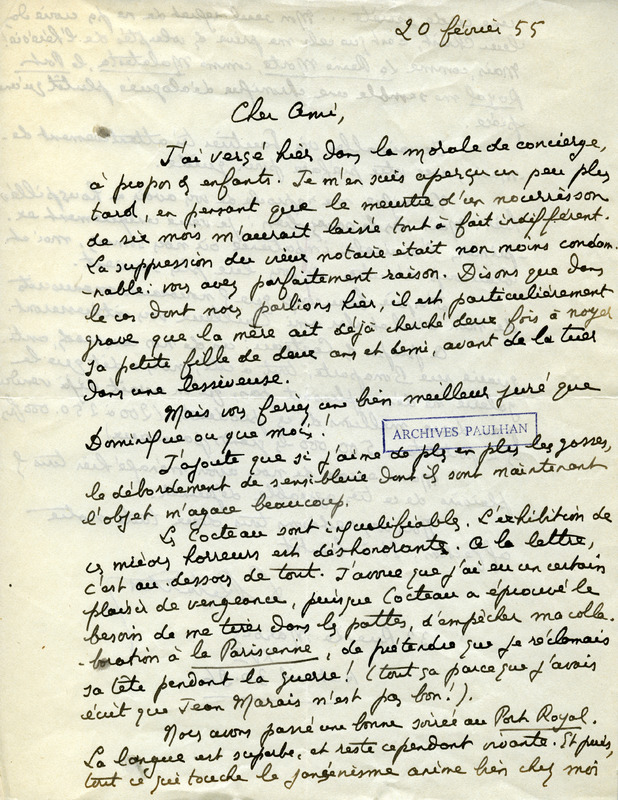 20 février 55
Cher Ami,
J'ai versé hier dans la morale de concierge,
à propos d'enfants. Je m'en suis aperçu un peu plus
tard, en pensant que le meurtre d'un nourrisson
de six mois m'aurait laissé tout à fait indifférent.
La suppression du vieux notaire était non moins condam-
nable : vous avez parfaitement raison. Disons que dans
le cas dont nous parlions hier, il est particulièrement
grave que la mère ait déjà cherché deux fois à noyer
sa petite fille de deux ans et demi, avant de la tuer
dans une lessiveuse.
Mais vous feriez un bien meilleur juré que
Dominique ou que moi !
ARCHIVES PAULHAN
J'ajoute que si j'aime de plus en plus les gosses,
le débordement de sensiblerie dont ils sont maintenant
l'objet m'agace beaucoup.
Les Cocteau sont inqualifiables. L'exhibition de
ces mièvres horreurs est déshonorante. A la lettre,
c'est au-dessous de tout. J'avoue que j'ai eu un certain
plaisir de vengeance, puisque Cocteau a éprouvé le
besoin de me tirer dans les pattes, d'empêcher ma colla-
boration à la Parisienne, de prétendre que je réclamais
sa tête pendant la guerre ! (tout ça parce que j'avais
écrit que Jean Marais n'est pas bon !).
Nous avons passé une bonne soirée au Port Royal.
La langue est superbe, et reste cependant vivante. Et puis,
tout ce qui touche le jansénisme anime bien chez moi